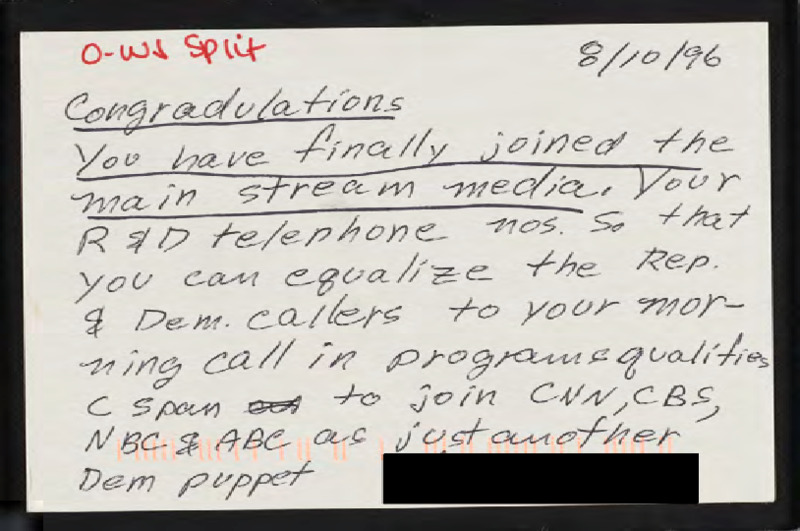 O-WJ Split
8/10/96
Congradulations
You have finally joined the
main stream media. Your
R & D telephone nos. so that
you can equalize the Rep.
& Dem. callers to your mor-
ning call in programs qualifies
C Span to join CNN, CBS,
NBC & ABC as just another
Dem puppet